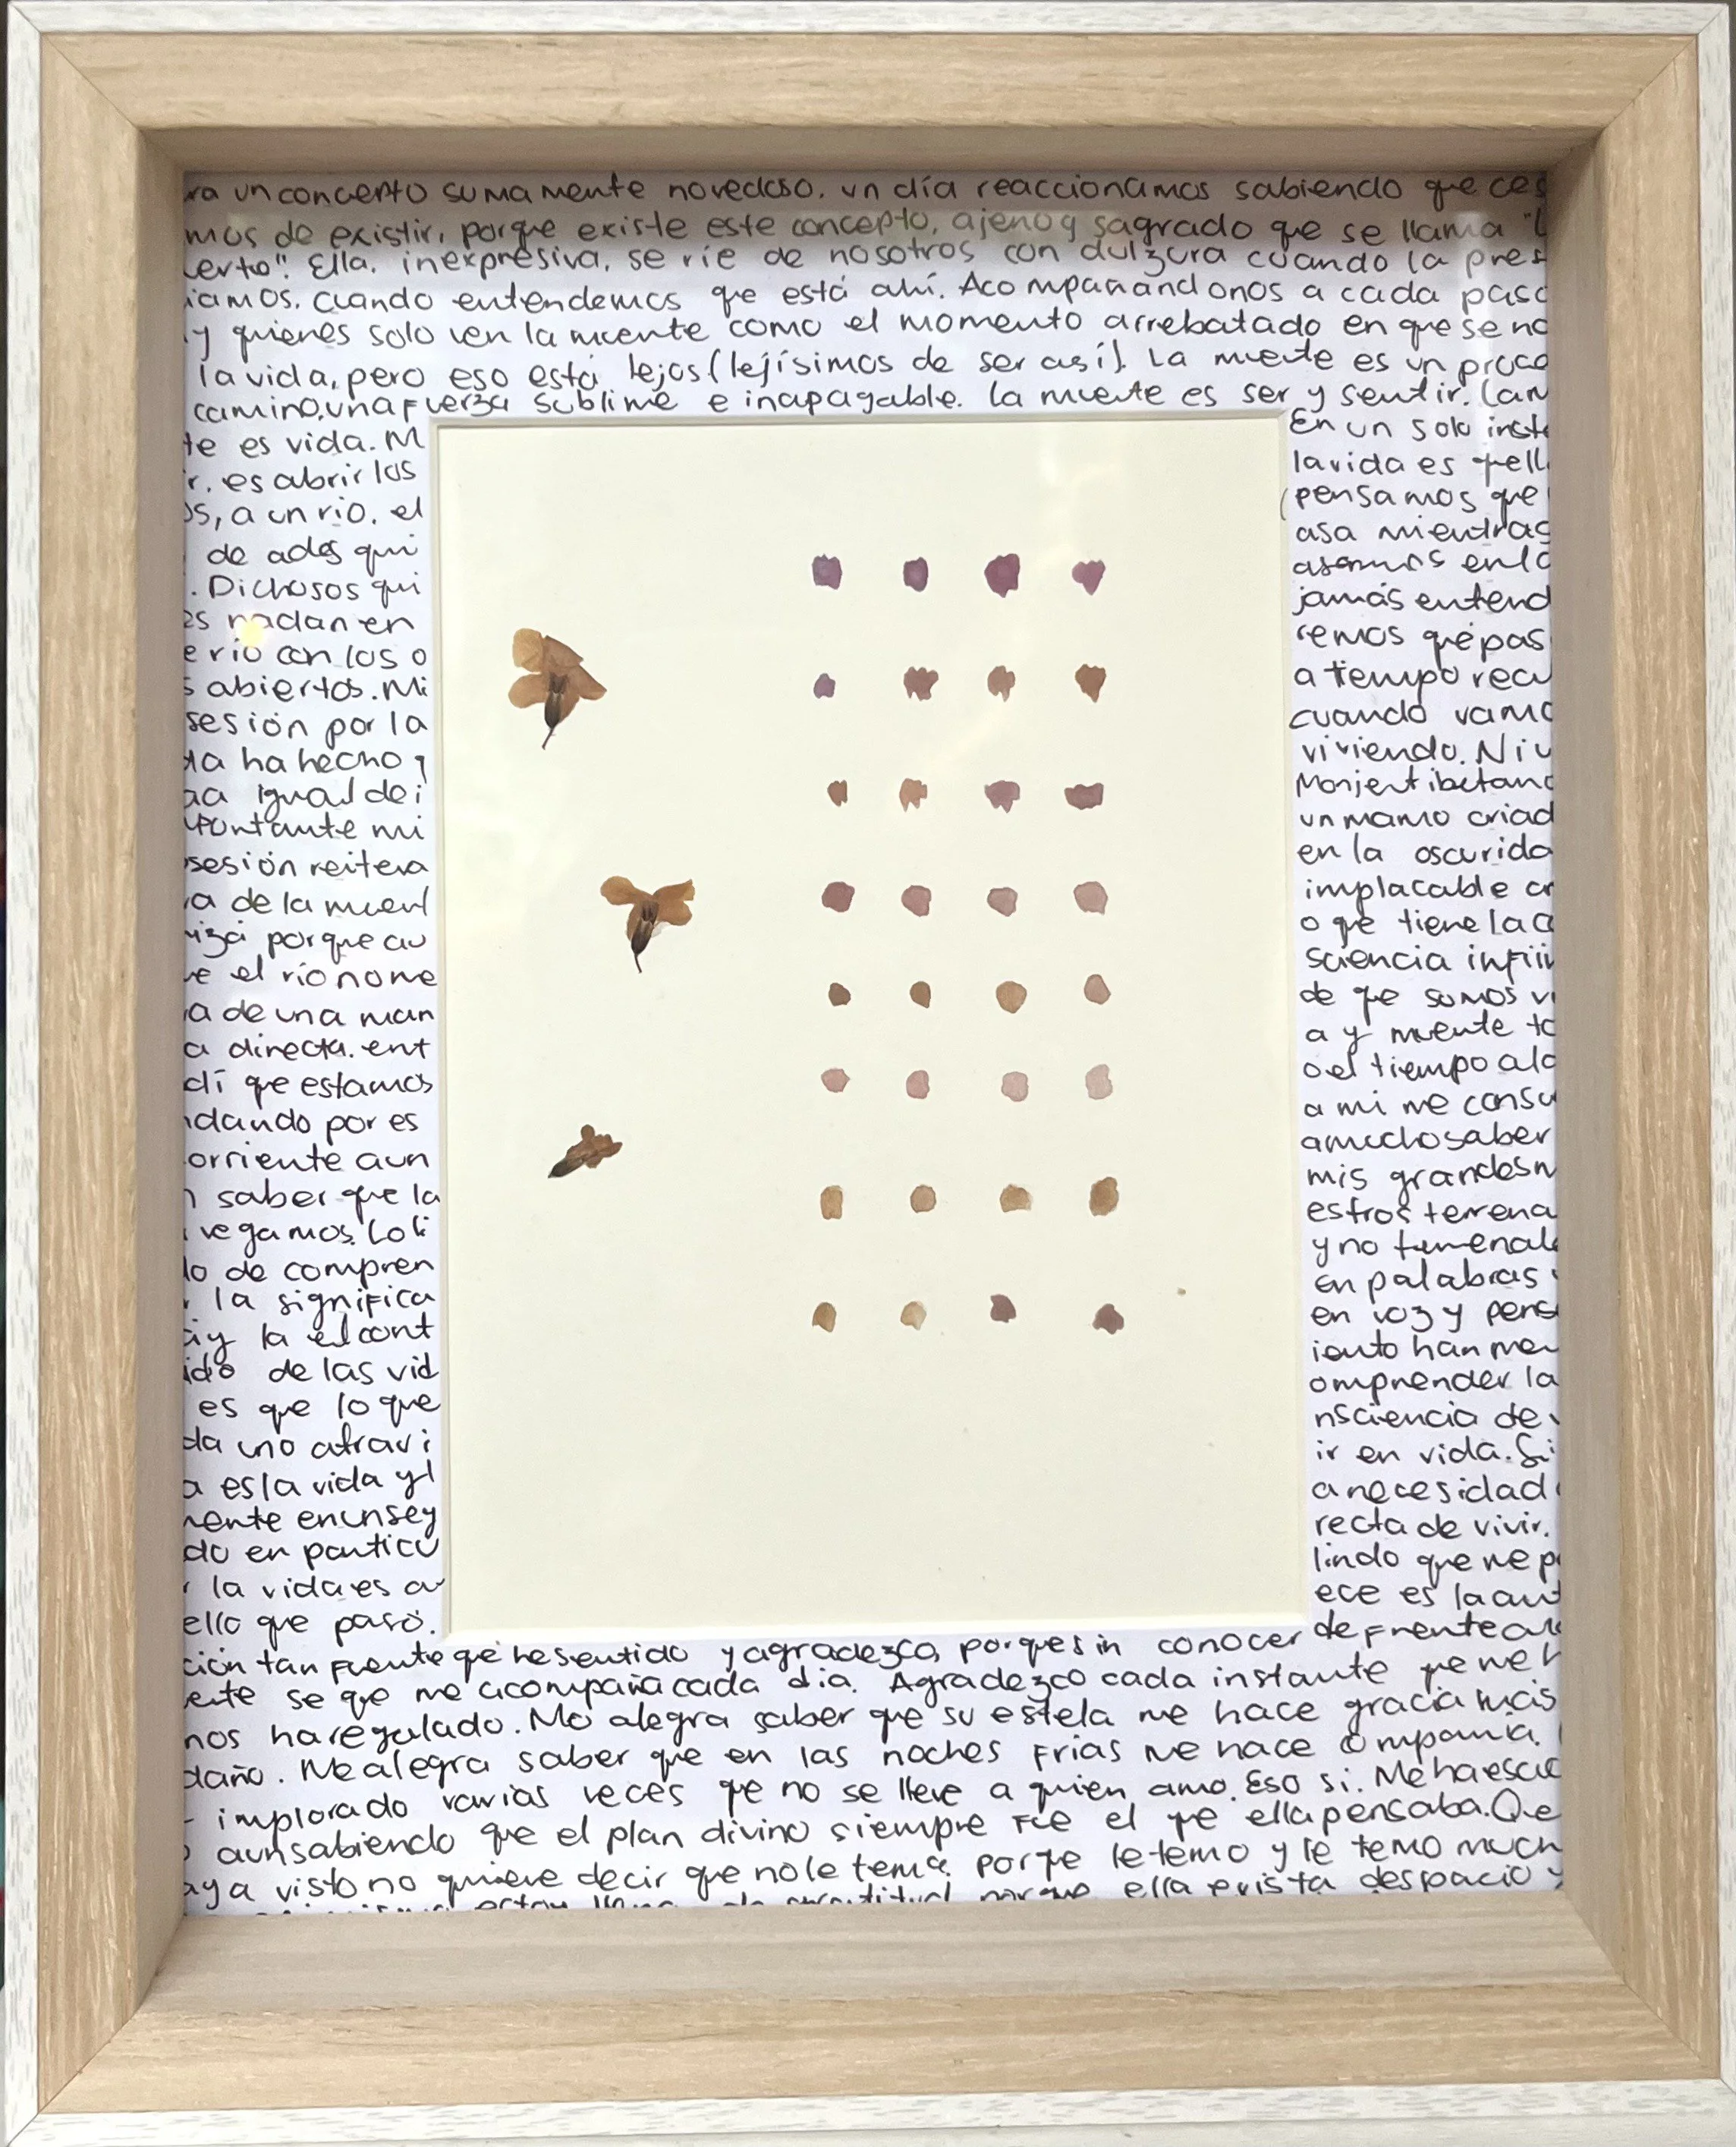 ra un concepto sumamente novedoso. un día reaccionamos sabiendo que ces
mos de existir, porque existe este concepto, ajeno y sagrado que se llama "L
uerto". Ella, inexpresiva, se ríe de nosotros con dulzura cuando la pres
iamos. Cuando entendemos que está ahí. Acompañándonos a cada paso
y quienes solo ven la muerte como el momento arrebatado en que se no
la vida, pero eso está lejos (lejísimos de ser así). La muerte es un proce
camino, una fuerza sublime e inapagable. La muerte es ser y sentir. La m
te es vida. M
r. es abrir los
os, a un rio. el
de ades qui
. Dichosos qui
es nadan en
e rio con los o
s abiertos. Mi
sesión por la
da ha hecho q
aa igual de i
portante mi
sesión reitera
a de la muert
izá porque au
ue el río no me
a de una man
a directa. ent
dí que estamos
ndando por es
orriente aun
n saber que la
vegamos. Lo li
do de compren
la significa
ay la el cont
ido de las vid
es que lo que
da uno atravi
a es la vida y l
uerte en un seg
do en particu
la vida es a
ello que pasó.
En un solo inst
la vida es quell
(pensamos que
asa mientras
asamos en lo
jamás entend
remos que pas
a tiempo recu
cuando vamo
viviendo. Ni u
Monje tibetano
un mamo criad
en la oscurida
implacable cr
o que tiene la c
sciencia infiin
de que somos vi
a y muerte to
o el tiempo a la
a mi me consu
a mucho saber
mis grandes m
estros terrena
y no terrenale
en palabras
en voz y pensa
iento han me
omprender la
nsciencia de
ir en vida. Si
a necesidad
recta de vivir.
lindo que me p
ece es la aut
de frente a la
ción tan fuerte que he sentido y agradezco, porque sin conocer
erte se que me acompaña cada día. Agradezco cada instante que me h
nos ha regalado. Me alegra saber que su estela me hace gracia más
daño. Me alegra saber que en las noches frías me hace compañia.
implorado varias veces que no se lleve a quien amo. Eso si. Me ha escu
aun sabiendo que el plan divino siempre fue el que ella pensaba. Que
aya visto no quiere decir que no le tema. porque le temo y le temo much
estoy llena de gratitud porque ella exista despacio y